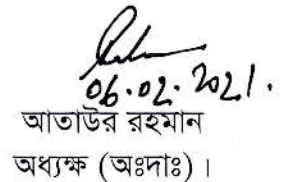 06.02.2021.
আতাউর রহমান
অধ্যক্ষ (অঃদাঃ)।